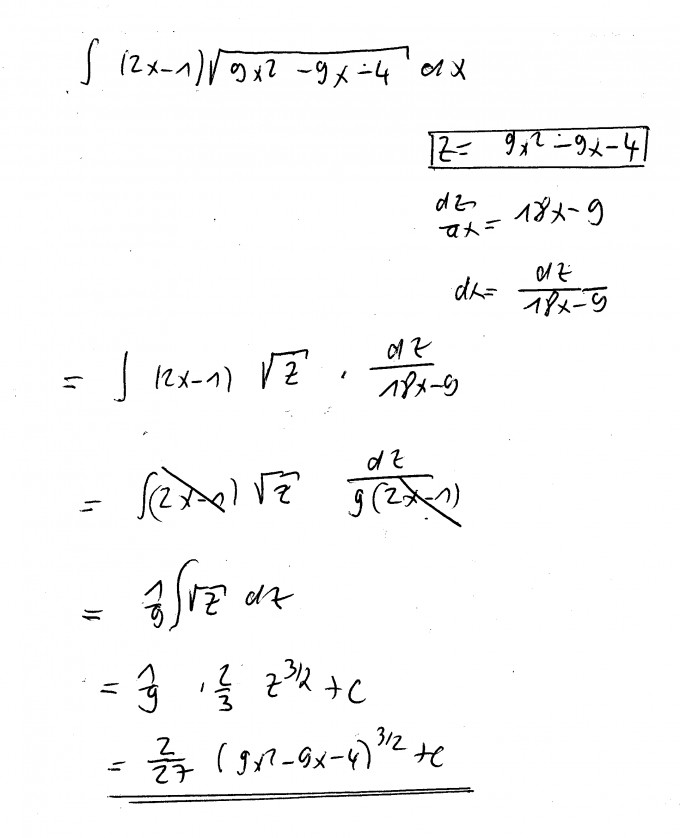 ∫ (2x-1)√(9x² -9x-4) dx
z= 9x²-9x-4
dz/dx= 18x-9
dx= dz/(18x-9)
= ∫ (2x-1) √z · dz/(18x-9)
= ∫(2x-1) √z dz/(9(2x-1))
= 1/9 ∫√z dz
= 1/9 · 2/3 z^(3/2) +C
= 2/27 (9x²-9x-4)^(3/2) +C